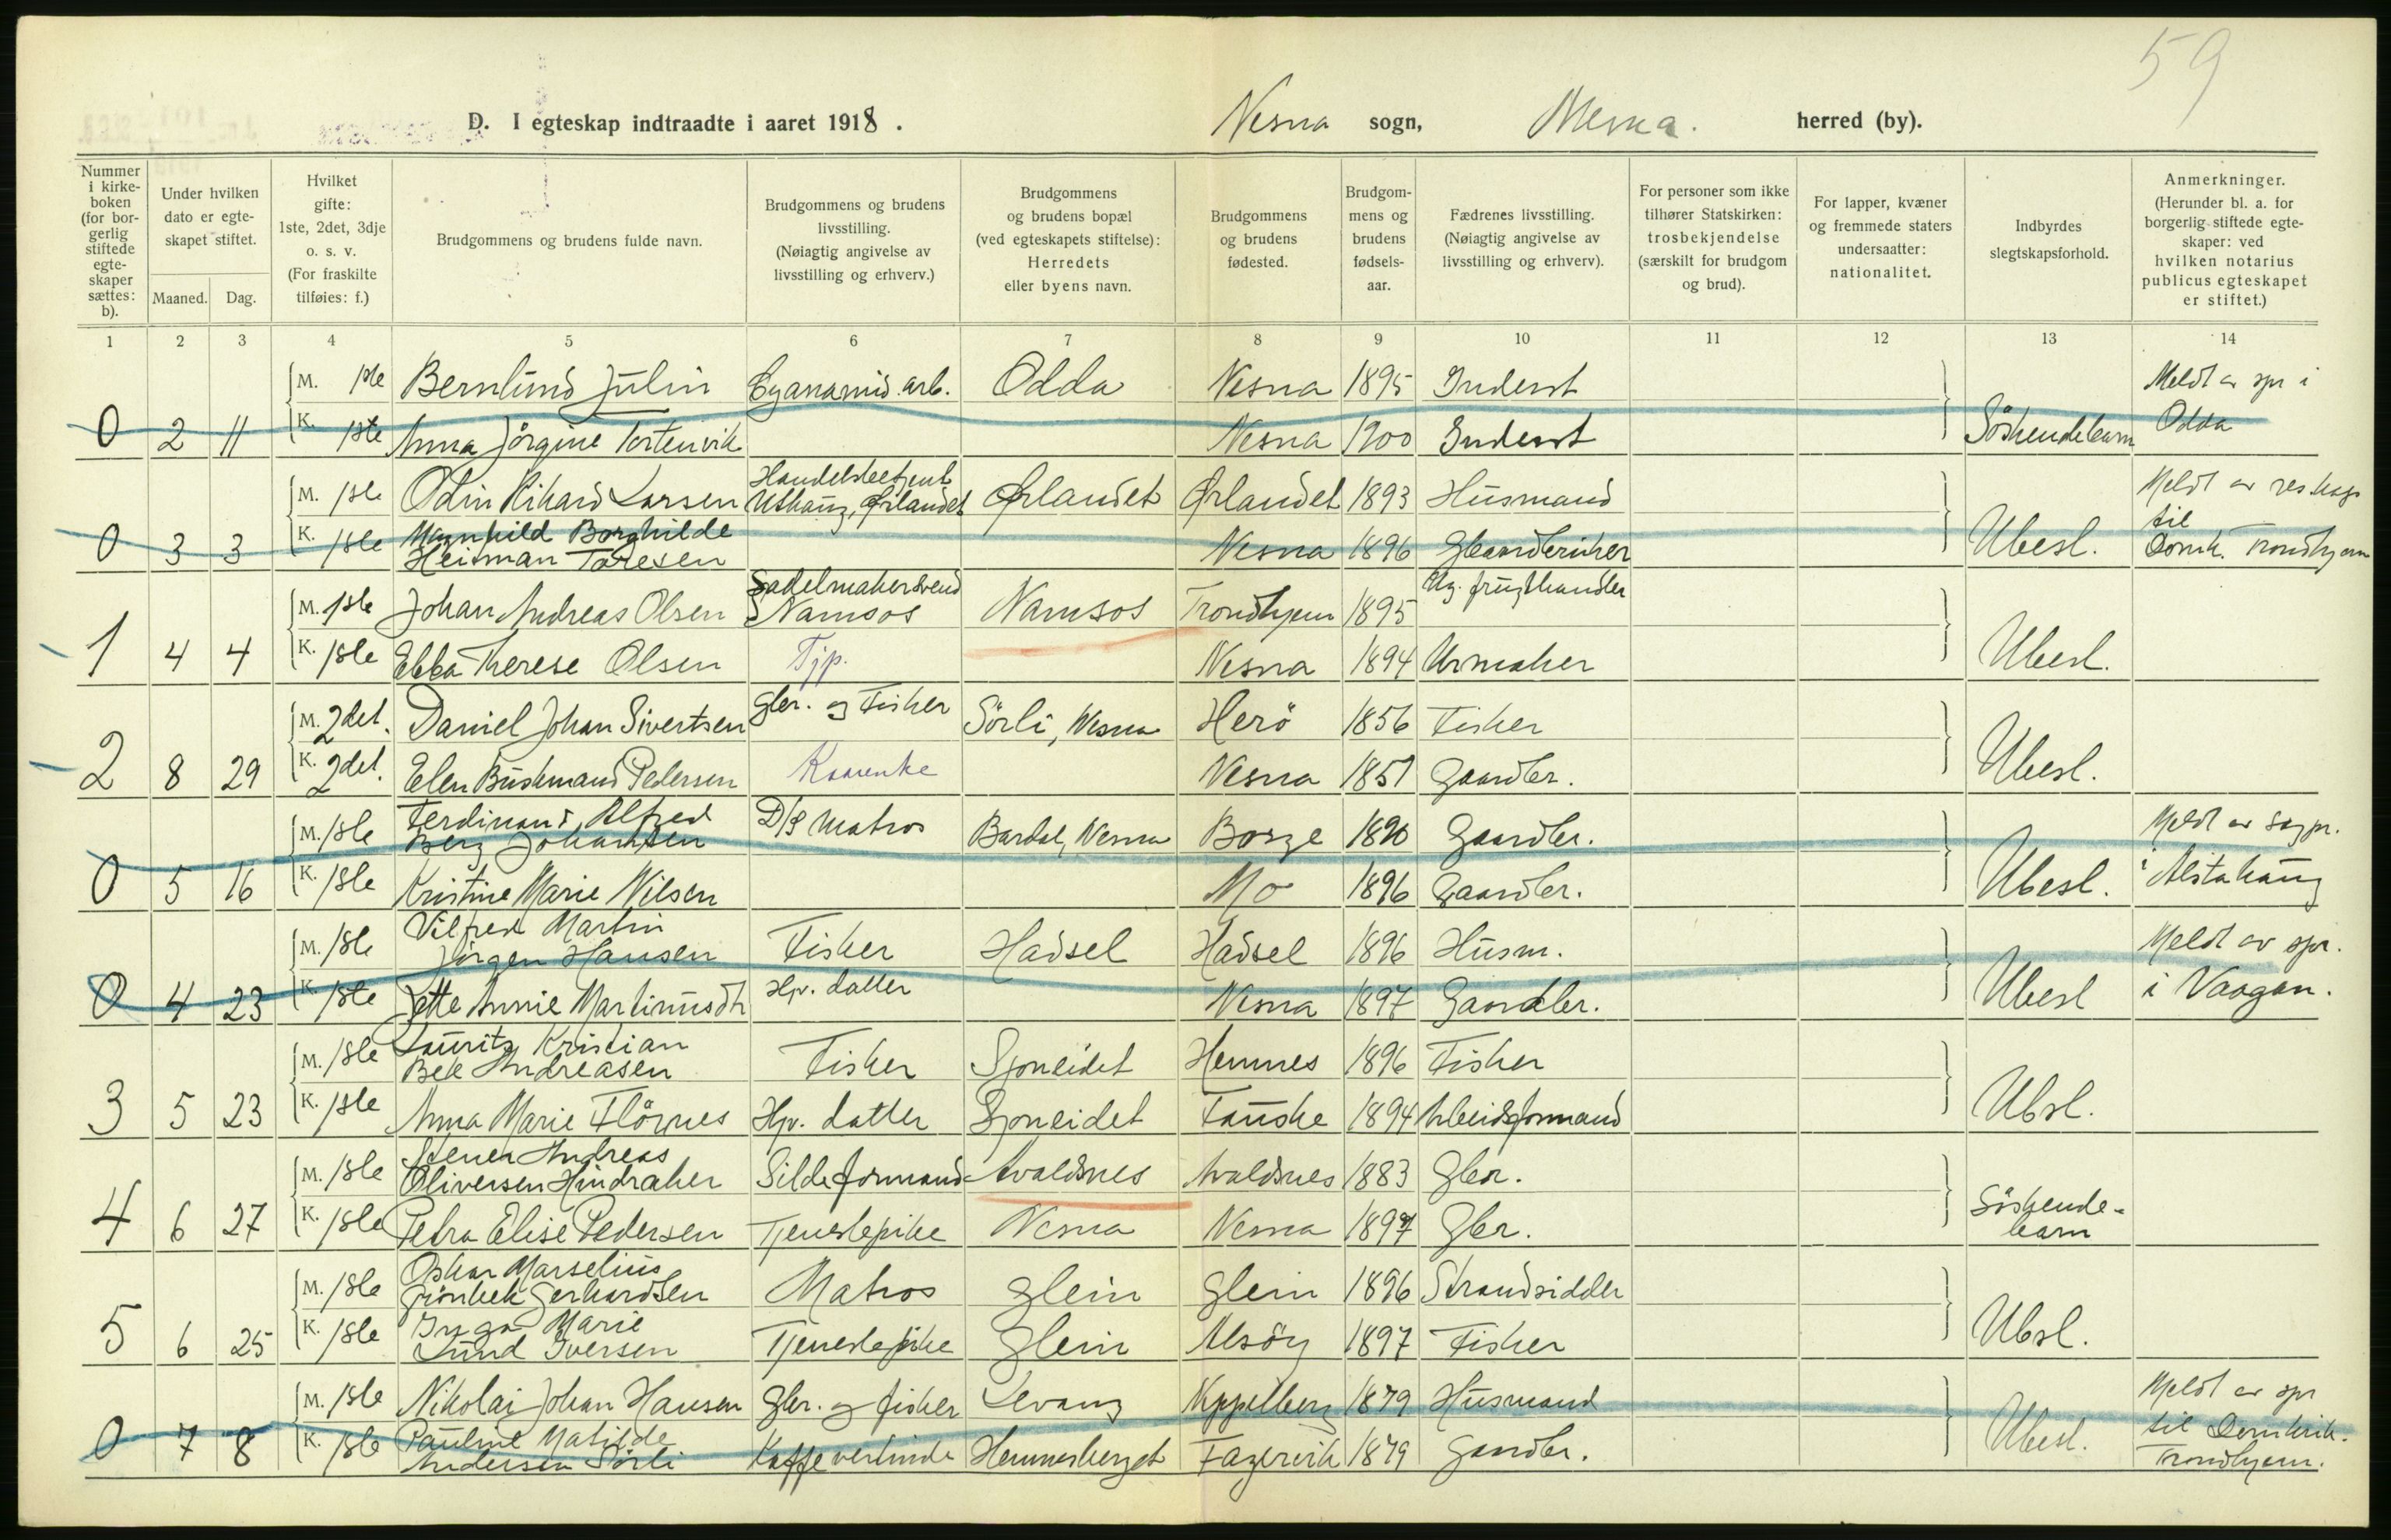 59
D. I egteskap indtraadte i aaret 1918. Nesna sogn, Nesna. herred (by).
Nummer i kirkeboken (for borgerlig stiftede egteskaper sættes: b).
Under hvilken dato er egteskapet stiftet. Maaned. Dag.
Hvilket gifte: 1ste, 2det, 3dje o. s. v. (For fraskilte tilføies: f.)
Brudgommens og brudens fulde navn.
Brudgommens og brudens livsstilling. (Nøiagtig angivelse av livsstilling og erhverv.)
Brudgommens og brudens bopæl (ved egteskapets stiftelse): Herredets eller byens navn.
Brudgommens og brudens fødested.
Brudgommens og brudens fødselsaar.
Fædrenes livsstilling. (Nøiagtig angivelse av livsstilling og erhverv).
For personer som ikke tilhører Statskirken: trosbekjendelse (særskilt for brudgom og brud).
For lapper, kvæner og fremmede staters undersaatter: nationalitet.
Indbyrdes slegtskapsforhold.
Anmerkninger. (Herunder bl. a. for borgerlig stiftede egteskaper: ved hvilken notarius publicus egteskapet er stiftet.)
1 2 3 4 5 6 7 8 9 10 11 12 13 14
M. 1ste Bernlund Julin Cyanamid. arb. Odda Nesna 1895 Inderst Meldt av spr i
0 2 11 K. 1ste Anna Jörgine Nesna 1900 Inderst Söskendebarn Odda
M. 1ste Odin Rikard Larsen Handelsbetjent Uthaug, Ørlandet Ørlandet Ørlandet 1893 Husmand Meldt av
0 3 3 K. 1ste Magnhild Borghilde Heitman Toresen Nesna 1896 Gaardbruker Ubesl. til Domk. Trondhjem
M. 1ste Johan Andreas Olsen Sadelmakersvend Namsos Namsos Trondhjem 1895 frugthandler
1 4 4 K. 1ste Ebba Therese Olsen Tjp. Nesna 1894 Urmaker Ubesl.
M. 2det. Daniel Johan Sivertsen Gbr. og Fisker Sörli, Nesna Herö 1856 Fisker
2 8 29 K. 2det. Elen Buskmand Pedersen Kaarenke Nesna 1851 Gaardbr. Ubesl.
M. 1ste Ferdinand Alfred Berg Johansen D/S Matros Bardal, Nesna Borge 1890 Gaardbr. Meldt av sogpr.
0 5 16 K. 1ste Kristine Marie Nilsen Mo 1896 Gaardbr. Ubesl. i Alstahaug
M. 1ste Vilfred Martin Jörgen Hansen Fisker Hadsel Hadsel 1896 Husm. Meldt av spr.
0 4 23 K. 1ste Jette Annie Martinusdtr Hjv. datter Nesna 1897 Gaardbr. Ubesl i Vaagan.
M. 1ste Lauritz Kristian Bek Andreasen Fisker Sjoneidet Hemnes 1896 Fisker
3 5 23 K. 1ste Anna Marie Flörnes Hjv. datter Sjoneidet Fauske 1894 Arbeidsformand Ubsl.
M. 1ste Stener Andreas Oliversen Hindraker Sildeformand Avaldsnes Avaldsnes 1883 Gbr.
4 6 27 K. 1ste Petra Elise Pedersen Tjenestepike Nesna Nesna 1897 Gbr. Söskendebarn
M. 1ste Oskar Marselius Grönbek Gerhardsen Matros Glein Glein 1896 Strandsidder
5 6 25 K. 1ste Inga Marie Lund Iversen Tjenestepike Glein Alsöy 1897 Fisker Ubsl.
M. 1ste Nikolai Johan Hansen Gbr. og fisker Levang 1879 Husmand Meldt av spr
0 7 8 K. 1ste Pauline Matilde Andersen Sörli Kaffevertinde Hemnesberget Fagervik 1879 Gaardbr. Ubesl. til Domkirk. Trondhjem.